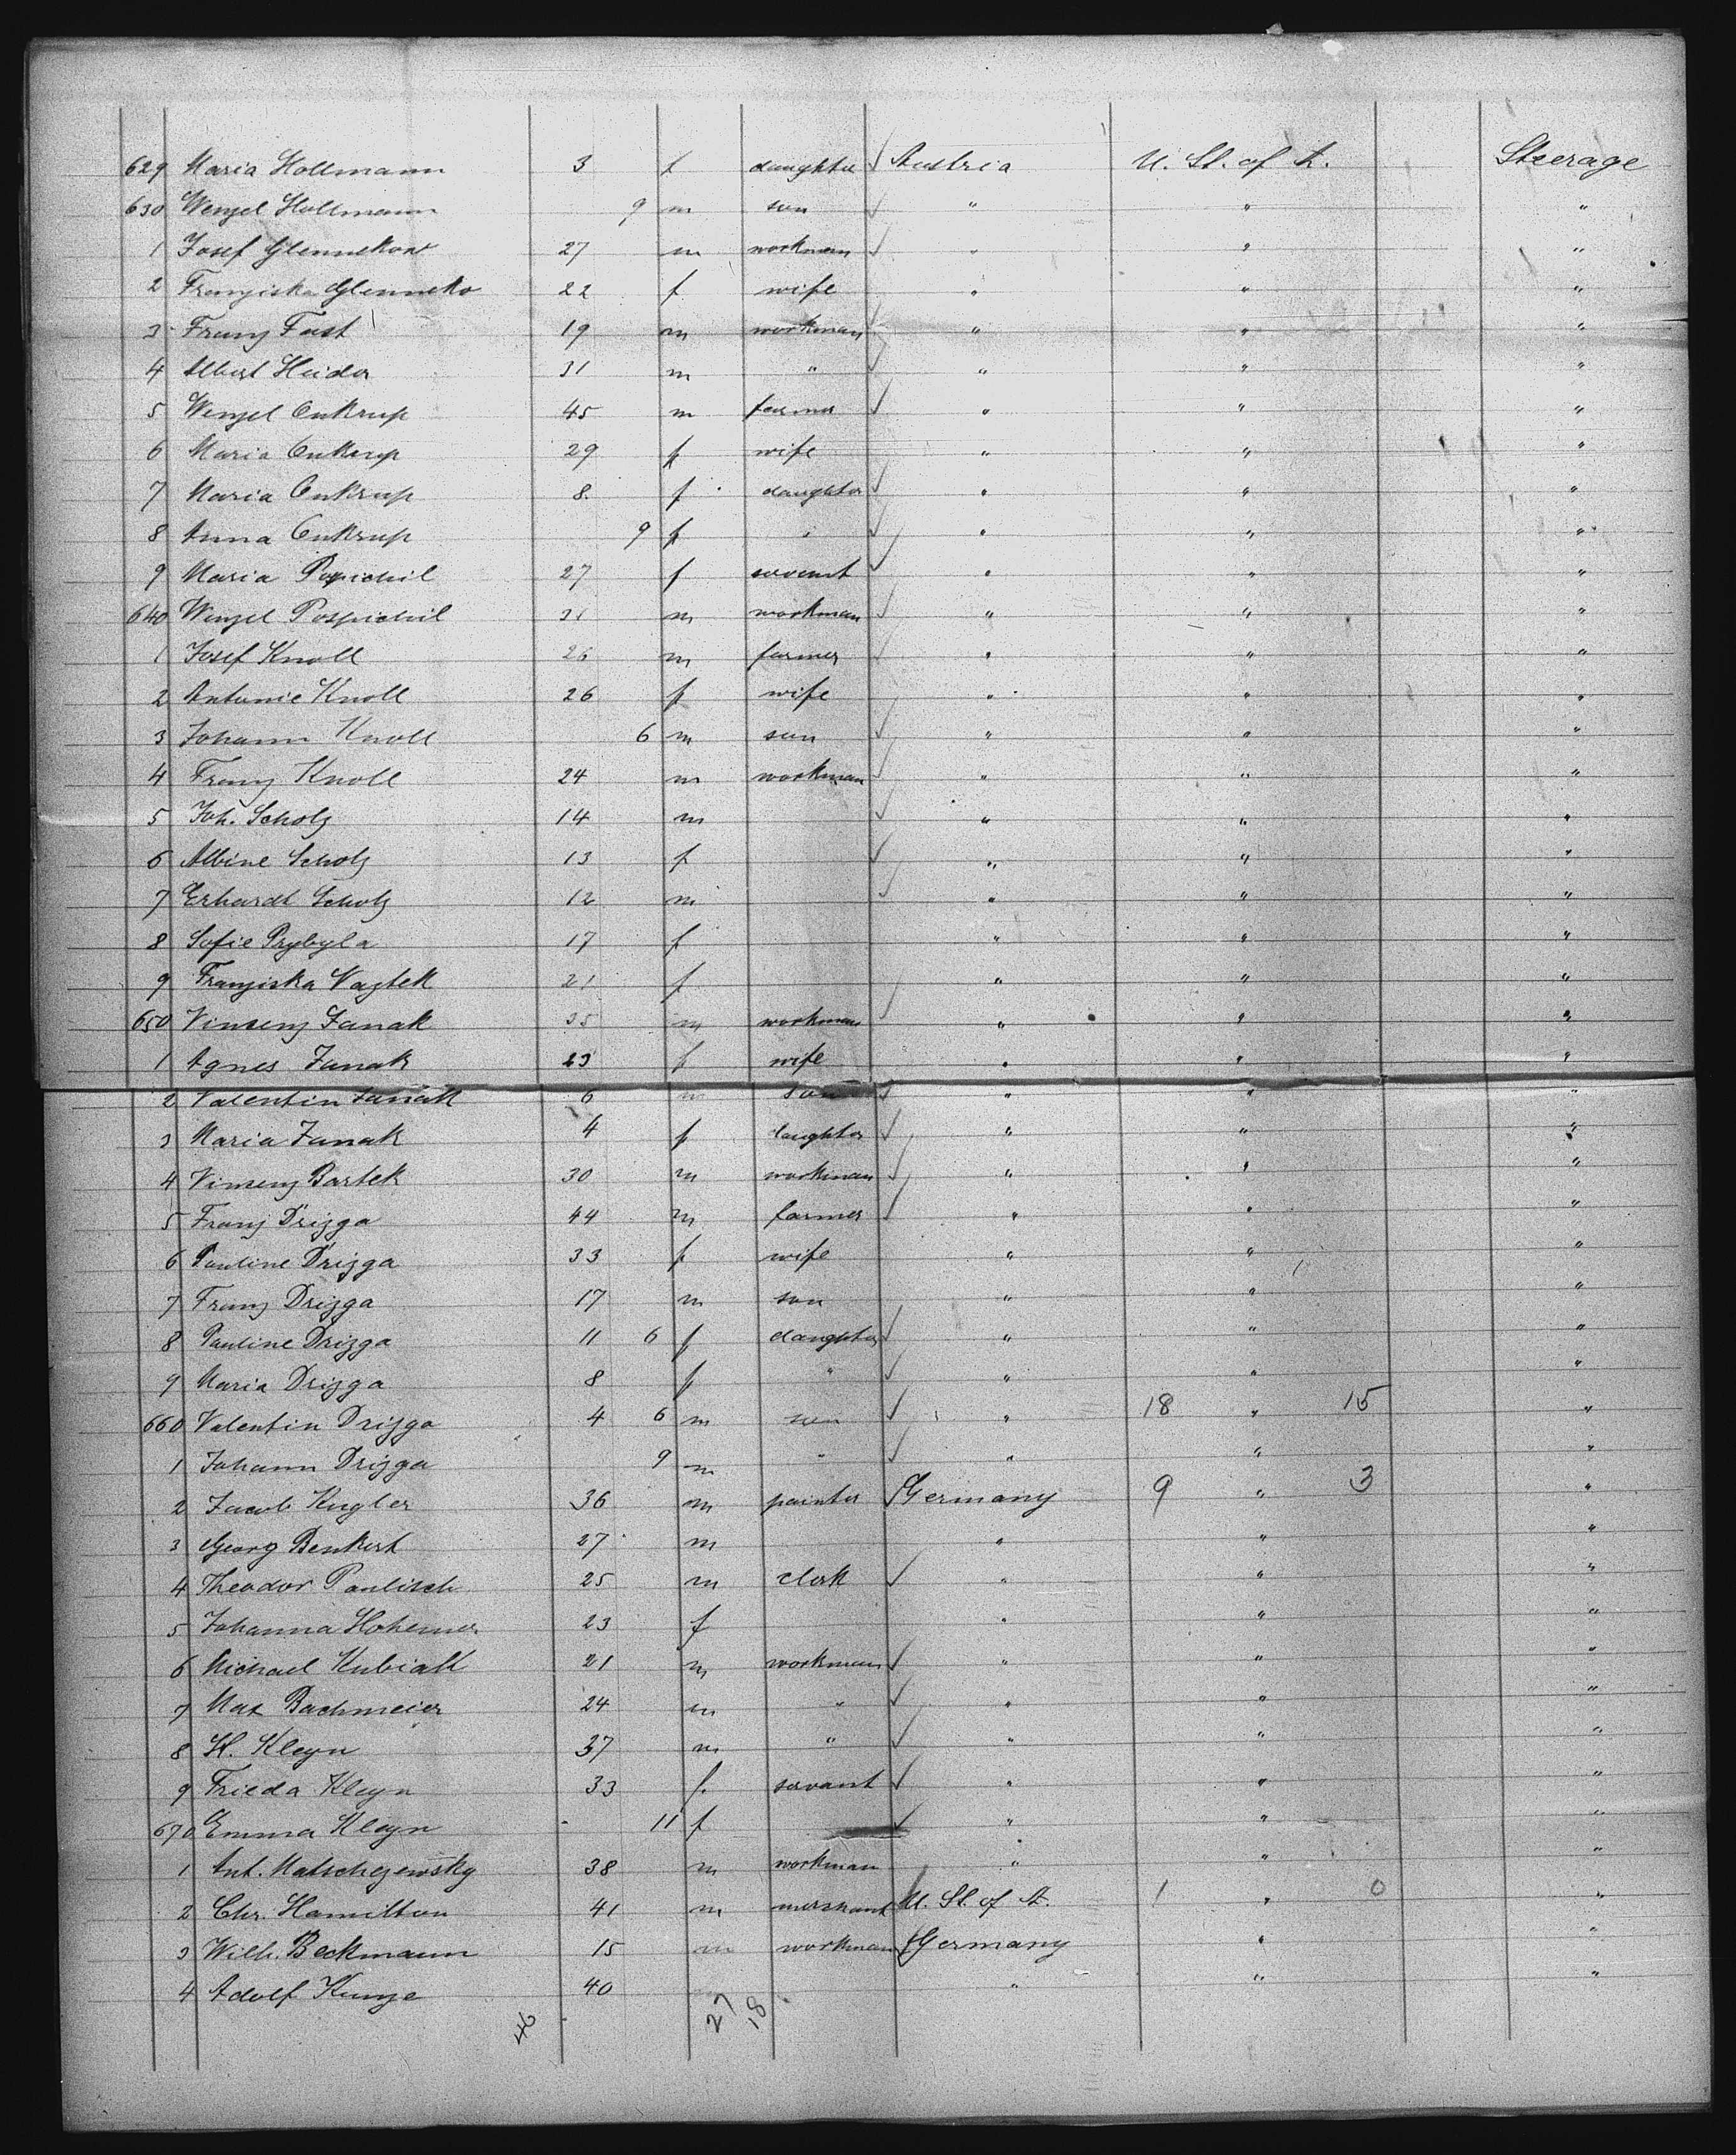 629 Maria Hollmann 3 f daughter ✓ Austria U. St. of A. Steerage
630 Wenzel Hollmann 9 m son ✓ " " "
1 Josef 27 m workman ✓ " " "
2 Franziska 22 f wife " " "
3 Franz Fast 19 m workman ✓ " " "
4 Albert Heider 31 m " ✓ " " "
5 Wenzel Cukrup 45 m farmer ✓ " " "
6 Maria Cukrup 29 f wife " " "
7 Maria Cukrup 8 f daughter ✓ " " "
8 Anna Cukrup 9 f " ✓ " " "
9 Maria 27 f servant ✓ " " "
640 Wenzel Pospichil 31 m workman ✓ " " "
1 Josef Knoll 26 m farmer ✓ " " "
2 Antonie Knoll 26 f wife " " "
3 Johann Knoll 6 m son ✓ " " "
4 Franz Knoll 24 m workman ✓ " " "
5 Joh. Scholz 14 m ✓ " " "
6 Albine Scholz 13 f ✓ " " "
7 Erhardt Scholz 12 m ✓ " " "
8 Sofie Przybyla 17 f " " "
9 Franziska Vaztek 21 f " " "
650 Vinzenz Janak 35 m workman ✓ " " "
1 Agnes Janak 23 f wife " " "
2 Valentin Janak 6 m son ✓ " " "
3 Maria Janak 4 f daughter ✓ " " "
4 Vinzenz Bartek 30 m workman ✓ " " "
5 Franz Drizga 44 m farmer ✓ " " "
6 Pauline Drizga 33 f wife " " "
7 Franz Drizga 17 m son " " "
8 Pauline Drizga 11 6 f daughter ✓ " " "
9 Maria Drizga 8 f " ✓ " " "
660 Valentin Drizga 4 6 m son ✓ " 18 " 15 "
1 Johann Drizga 9 m " ✓ " " "
2 Jacob Kugler 36 m painter ✓ Germany 9 " 3 "
3 Georg Benkert 27 m " " "
4 Theodor Paulisch 25 m clerk ✓ " " "
5 Johanna Hohenner 23 f " " "
6 Michael Kubiak 21 m workman ✓ " " "
7 Max Bachmeier 24 m " ✓ " " "
8 H. Kleyn 37 m " ✓ " " "
9 Frieda Kleyn 33 f. servant ✓ " " "
670 Emma Kleyn 11 f ✓ " " "
1 Ant. Matschezewsky 38 m workman " " "
2 Chr. Hamilton 41 m U. St. of A. 1 " 0 "
3 Wilh. Beckmann 15 m workman Germany " "
4 Adolf Kunze 40 " " "
46 27 18